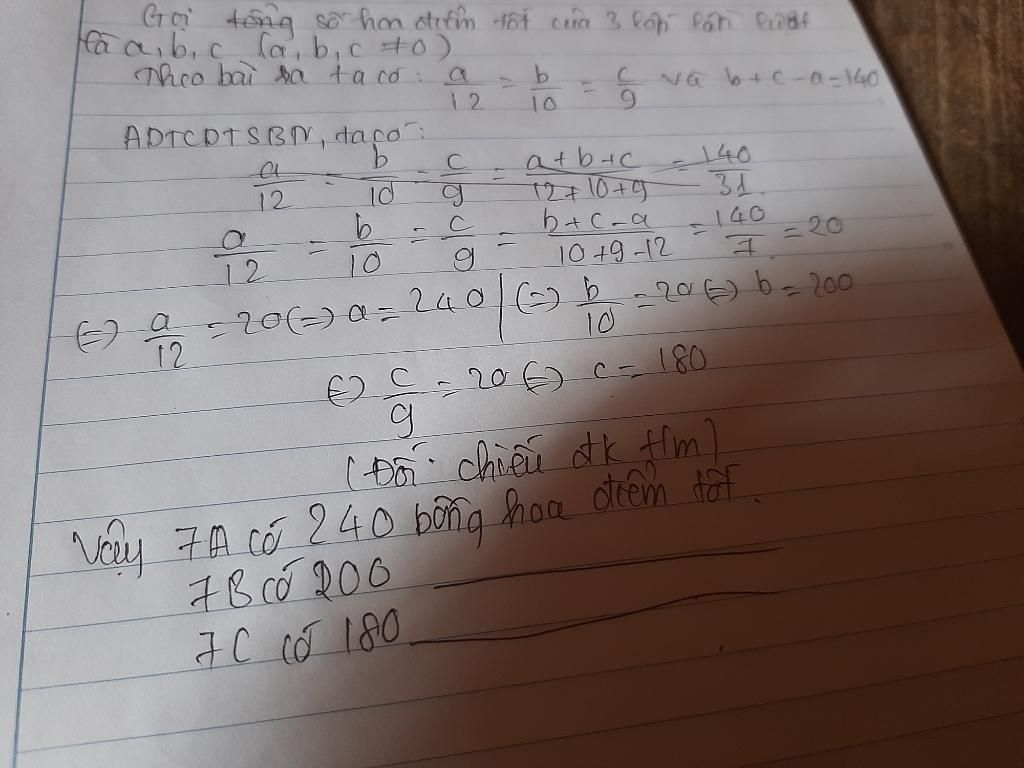 Gọi tổng số hoa điểm tốt của 3 lớp lần lượt
là a, b, c (a, b, c ≠ 0)
Theo bài ra ta có: a/12 = b/10 = c/9 và b + c - a = 140
ADTCDTSBN, ta có:
a/12 = b/10 = c/9 = a+b+c/12+10+9 = 140/31
a/12 = b/10 = c/9 = b+c-a/10+9-12 = 140/7 = 20
(=) a/12 = 20 (=) a = 240 | (=) b/10 = 20 (=) b = 200
(=) c/9 = 20 (=) c = 180
(Đối chiếu đk t/m)
Vậy 7A có 240 bông hoa điểm tốt.
7B có 200
7C có 180